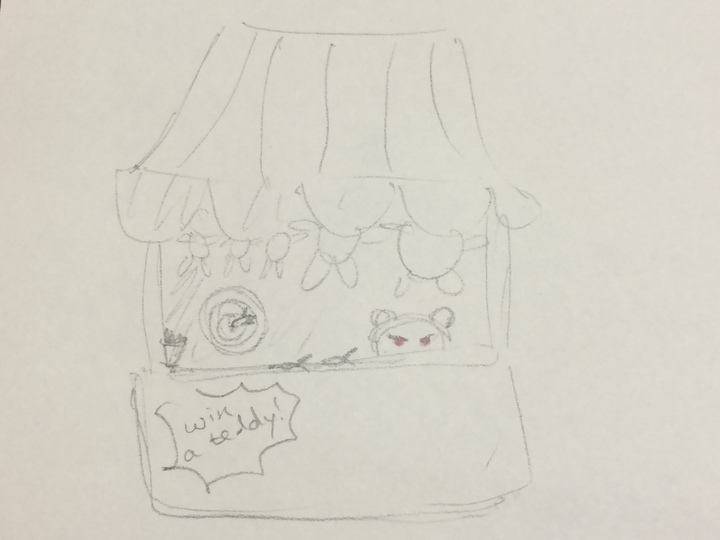 win
a teddy!